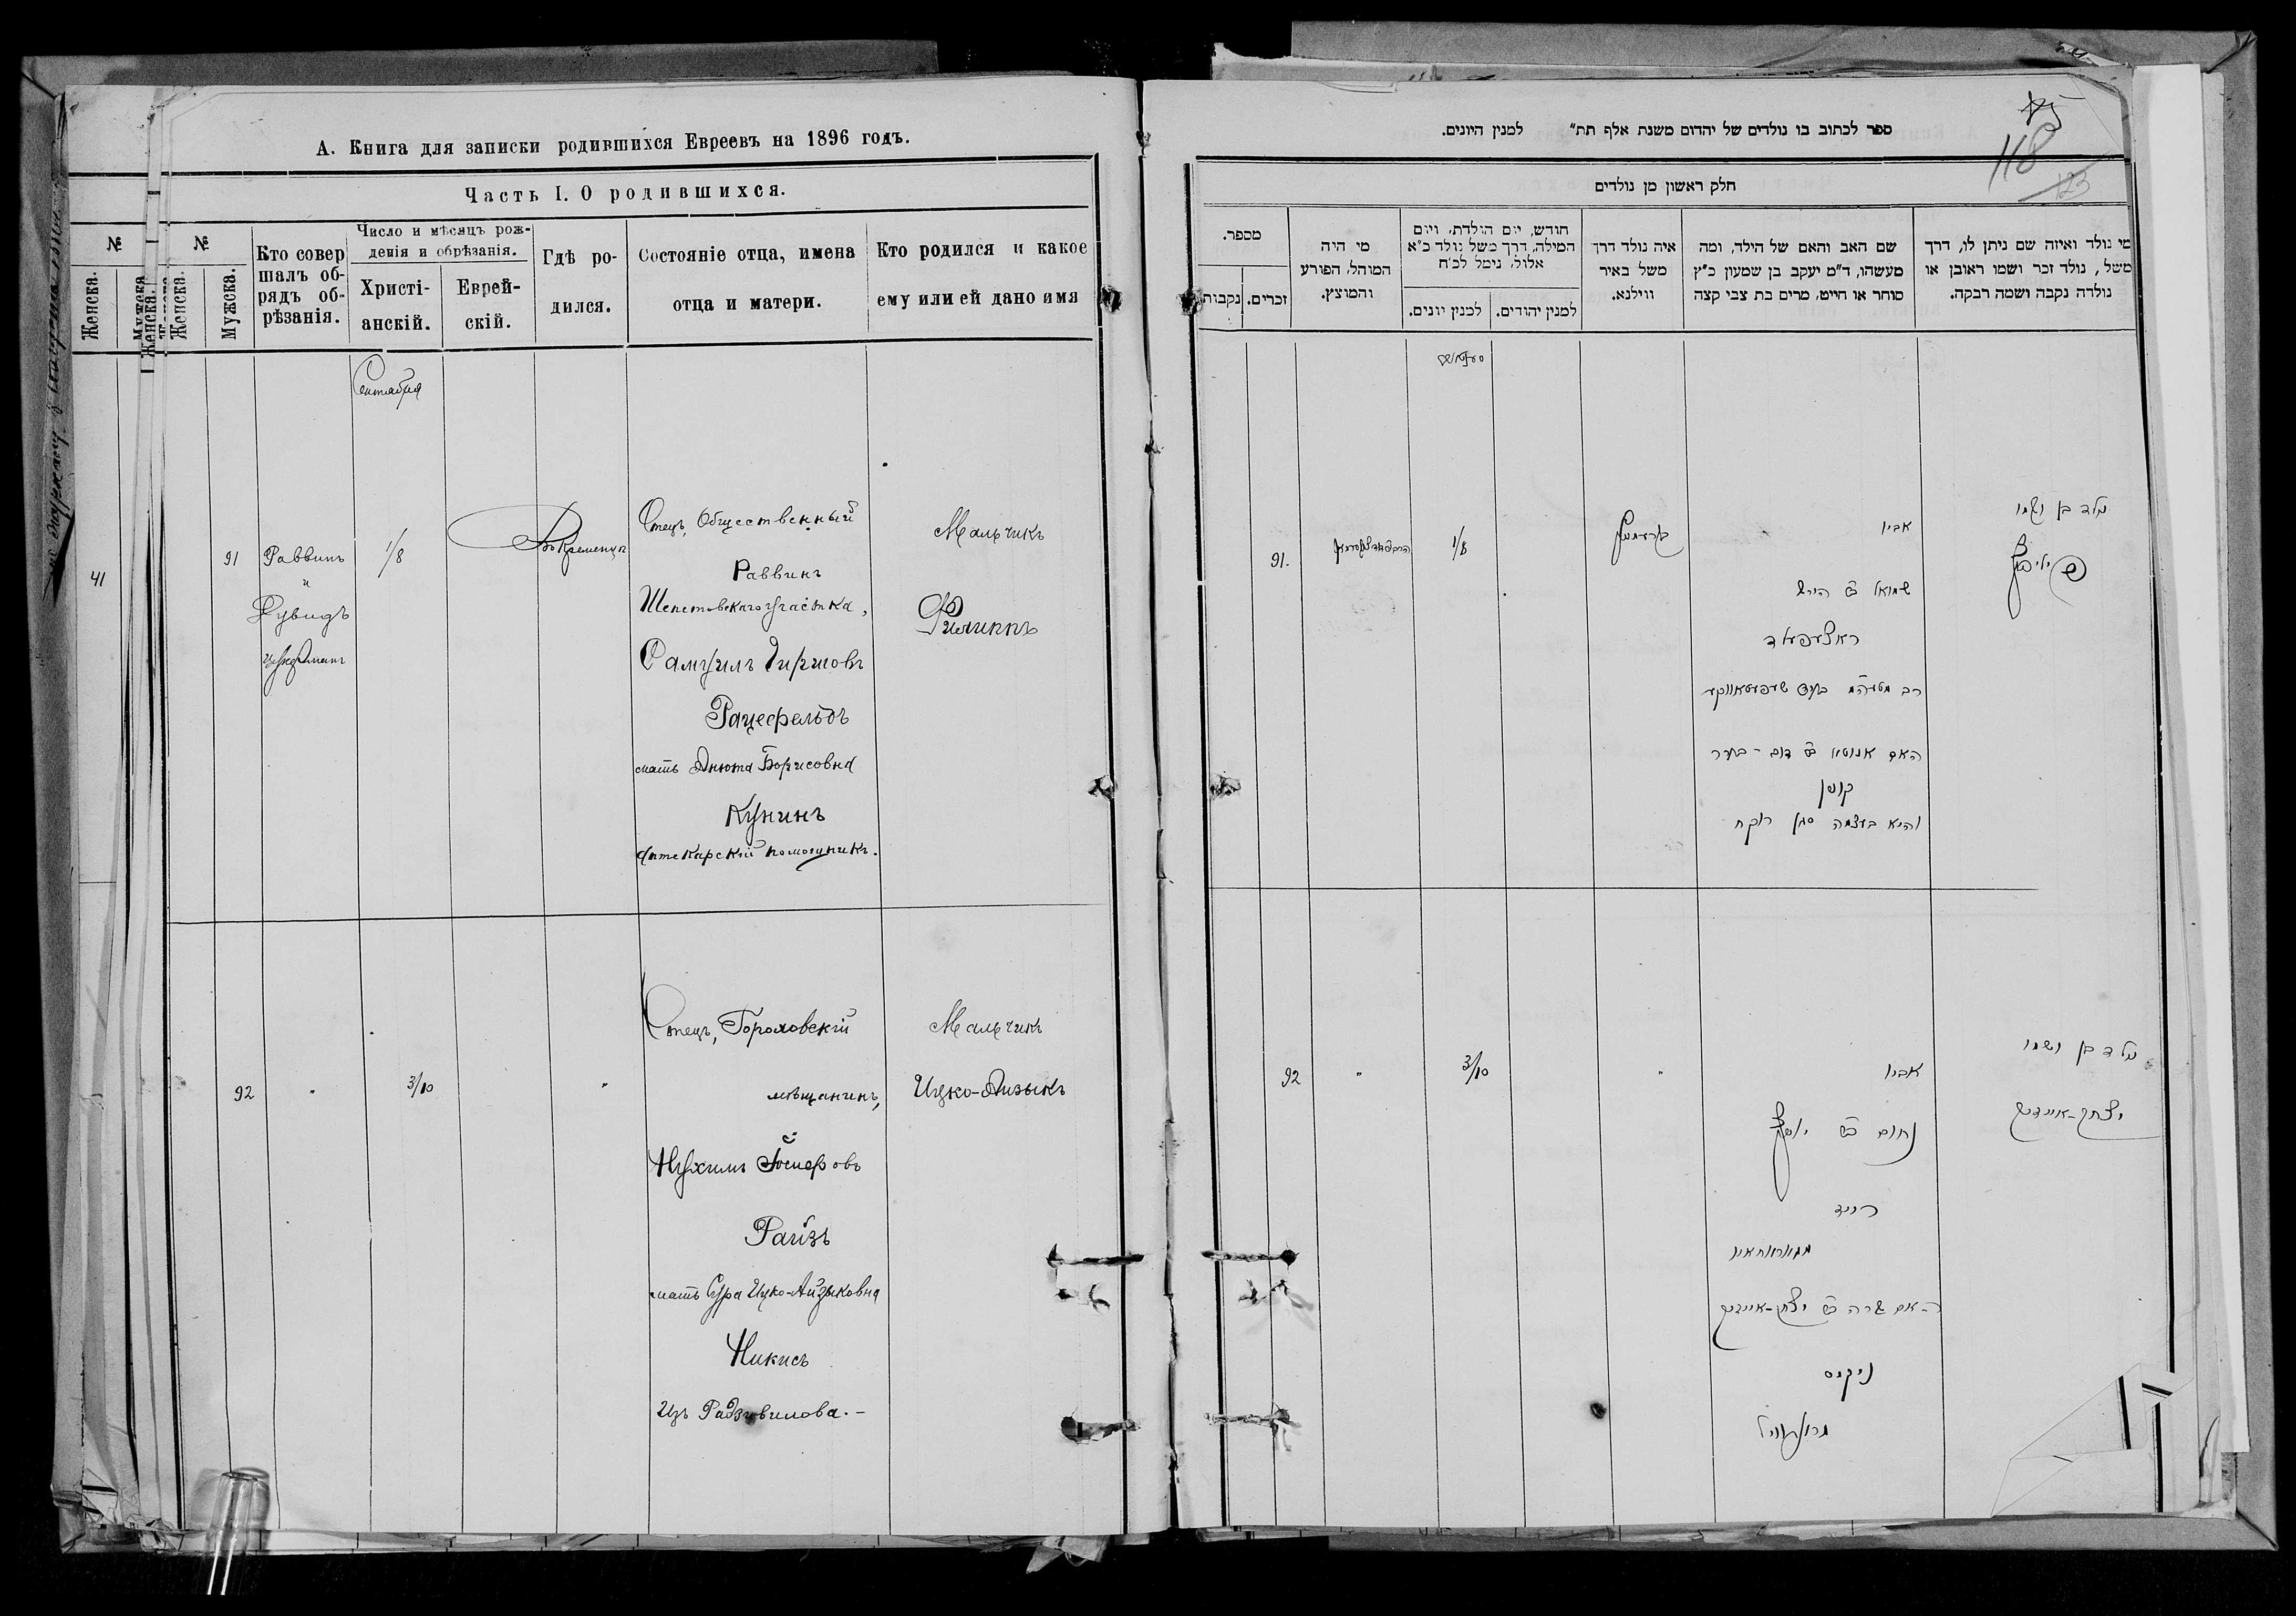 А. Книга для записки родившихся Евреевъ на 1896 годъ.
Часть I. О родившихся.
№
№
Женска.
Мужска
Женска.
Женска.
Мужска.
Кто совер
шалъ об-
рядъ об-
рѣзанія.
Число и мѣсяцъ рож-
денія и обрѣзанія.
Христі-
анскій.
Еврей-
скій.
Гдѣ ро-
дился.
Состояніе отца, имена
отца и матери.
Кто родился и какое
ему или ей дано имя
Сентября
41
91
Раввинъ
и
Рувидъ
1/8
Въ Кременцѣ
Отецъ, Общественный
Раввинъ
Шепетовскаго участка,
Самуилъ Гиршовъ
Рацефельдъ
мать Анюта Борисовна
Кунинъ
Аптекарскій помощникъ.
Мальчикъ
Филиппъ
92
"
3/10
"
Отецъ, Гороховскій
мѣщанинъ,
Нухимъ Іосифовъ
Райзъ
мать Сура Ицко-Айзыковна
Никисъ
Изъ Радзивилова.-
Мальчикъ
Ицко-Айзыкъ
85
118
123
ספר לכתוב בו נולדים של יהדום משנת אלף תת״ למנין היונים.
חלק ראשון מן נולדים
מספר.
נקבות
זכרים.
מי היה
המוהל, הפורע
והמוצץ.
חודש, יום הולדת, ויום
המילה, דרך משל נולד כ״א
אלול, נימל לכ״ח
למנין יונים.
למנין יהודים.
איה נולד דרך
משל באיר
ווילנא.
שם האב והאם של הילד, ומה
מעשהו, ד״מ יעקב בן שמעון כ״ץ
סוחר או חייט, מרים בת צבי קצה
מי נולד ואיזה שם ניתן לו, דרך
משל, נולד זכר ושמו ראובן או
נולדה נקבה ושמה רבקה.
91.
1/8
אביו
שמואל ב״ הירש
ראצעפעלד
האם אנוטא ב״ דוב-בער
קונין
והיא בעצמה סגן רוקח
נולד בן ושמו
פיליפ
92
"
3/10
"
אביו
נחום ב״ יוסף
רייז
האם שרה ב״ יצחק-אייזיק
ניקיס
נולד בן ושמו
יצחק-אייזיק